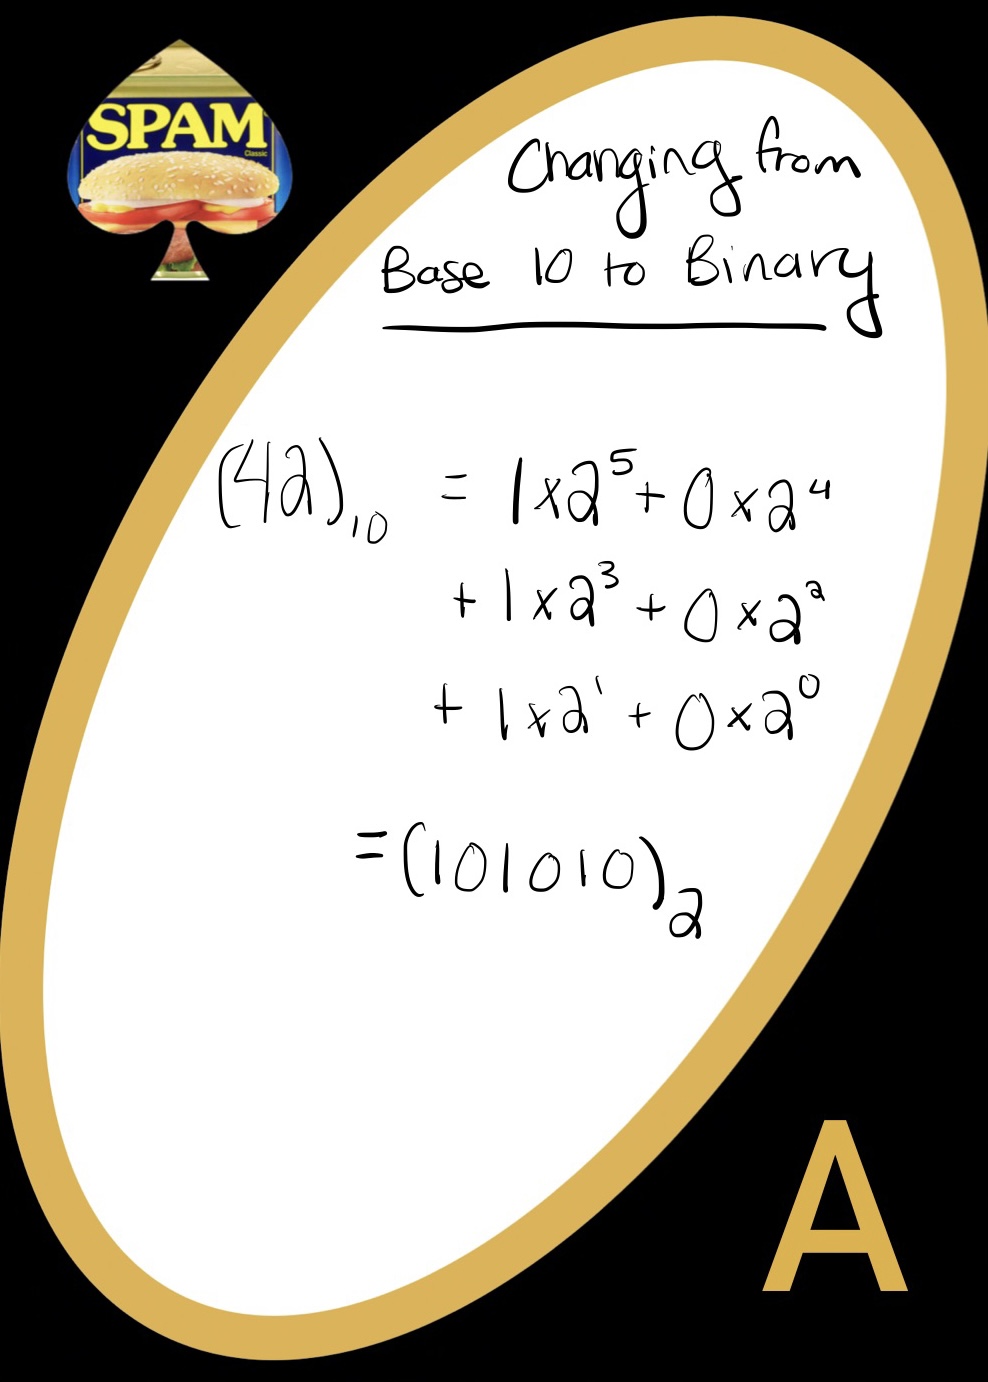 SPAM
Classic
Changing from
Base 10 to Binary
(42)₁₀ = 1x2⁵ + 0x2⁴
+ 1x2³ + 0x2²
+ 1x2¹ + 0x2⁰
= (101010)₂
A